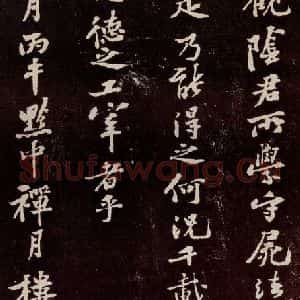 觀陰君所學守屍法
是乃能得之何況千載
道德之工宰者乎
月丙午黔中禪月樓
Shufawang.Cn